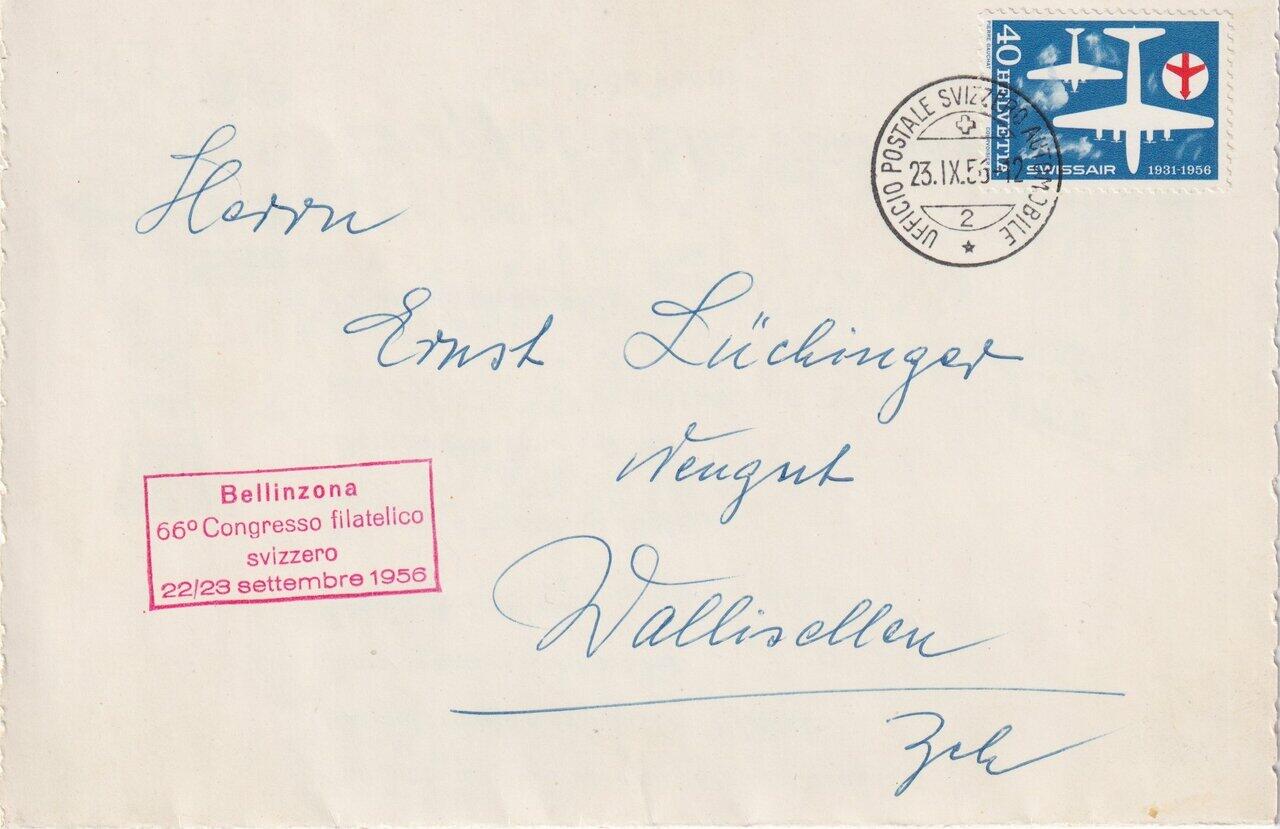 40 HELVETIA
PIERRE GAUCHAT
SWISSAIR 1931-1956
UFFICIO POSTALE SVIZZERO AUTOMOBILE
23.IX.56-12
2
Herrn
Ernst Lüchinger
Wallisellen
Zch
Bellinzona
66º Congresso filatelico
svizzero
22/23 settembre 1956